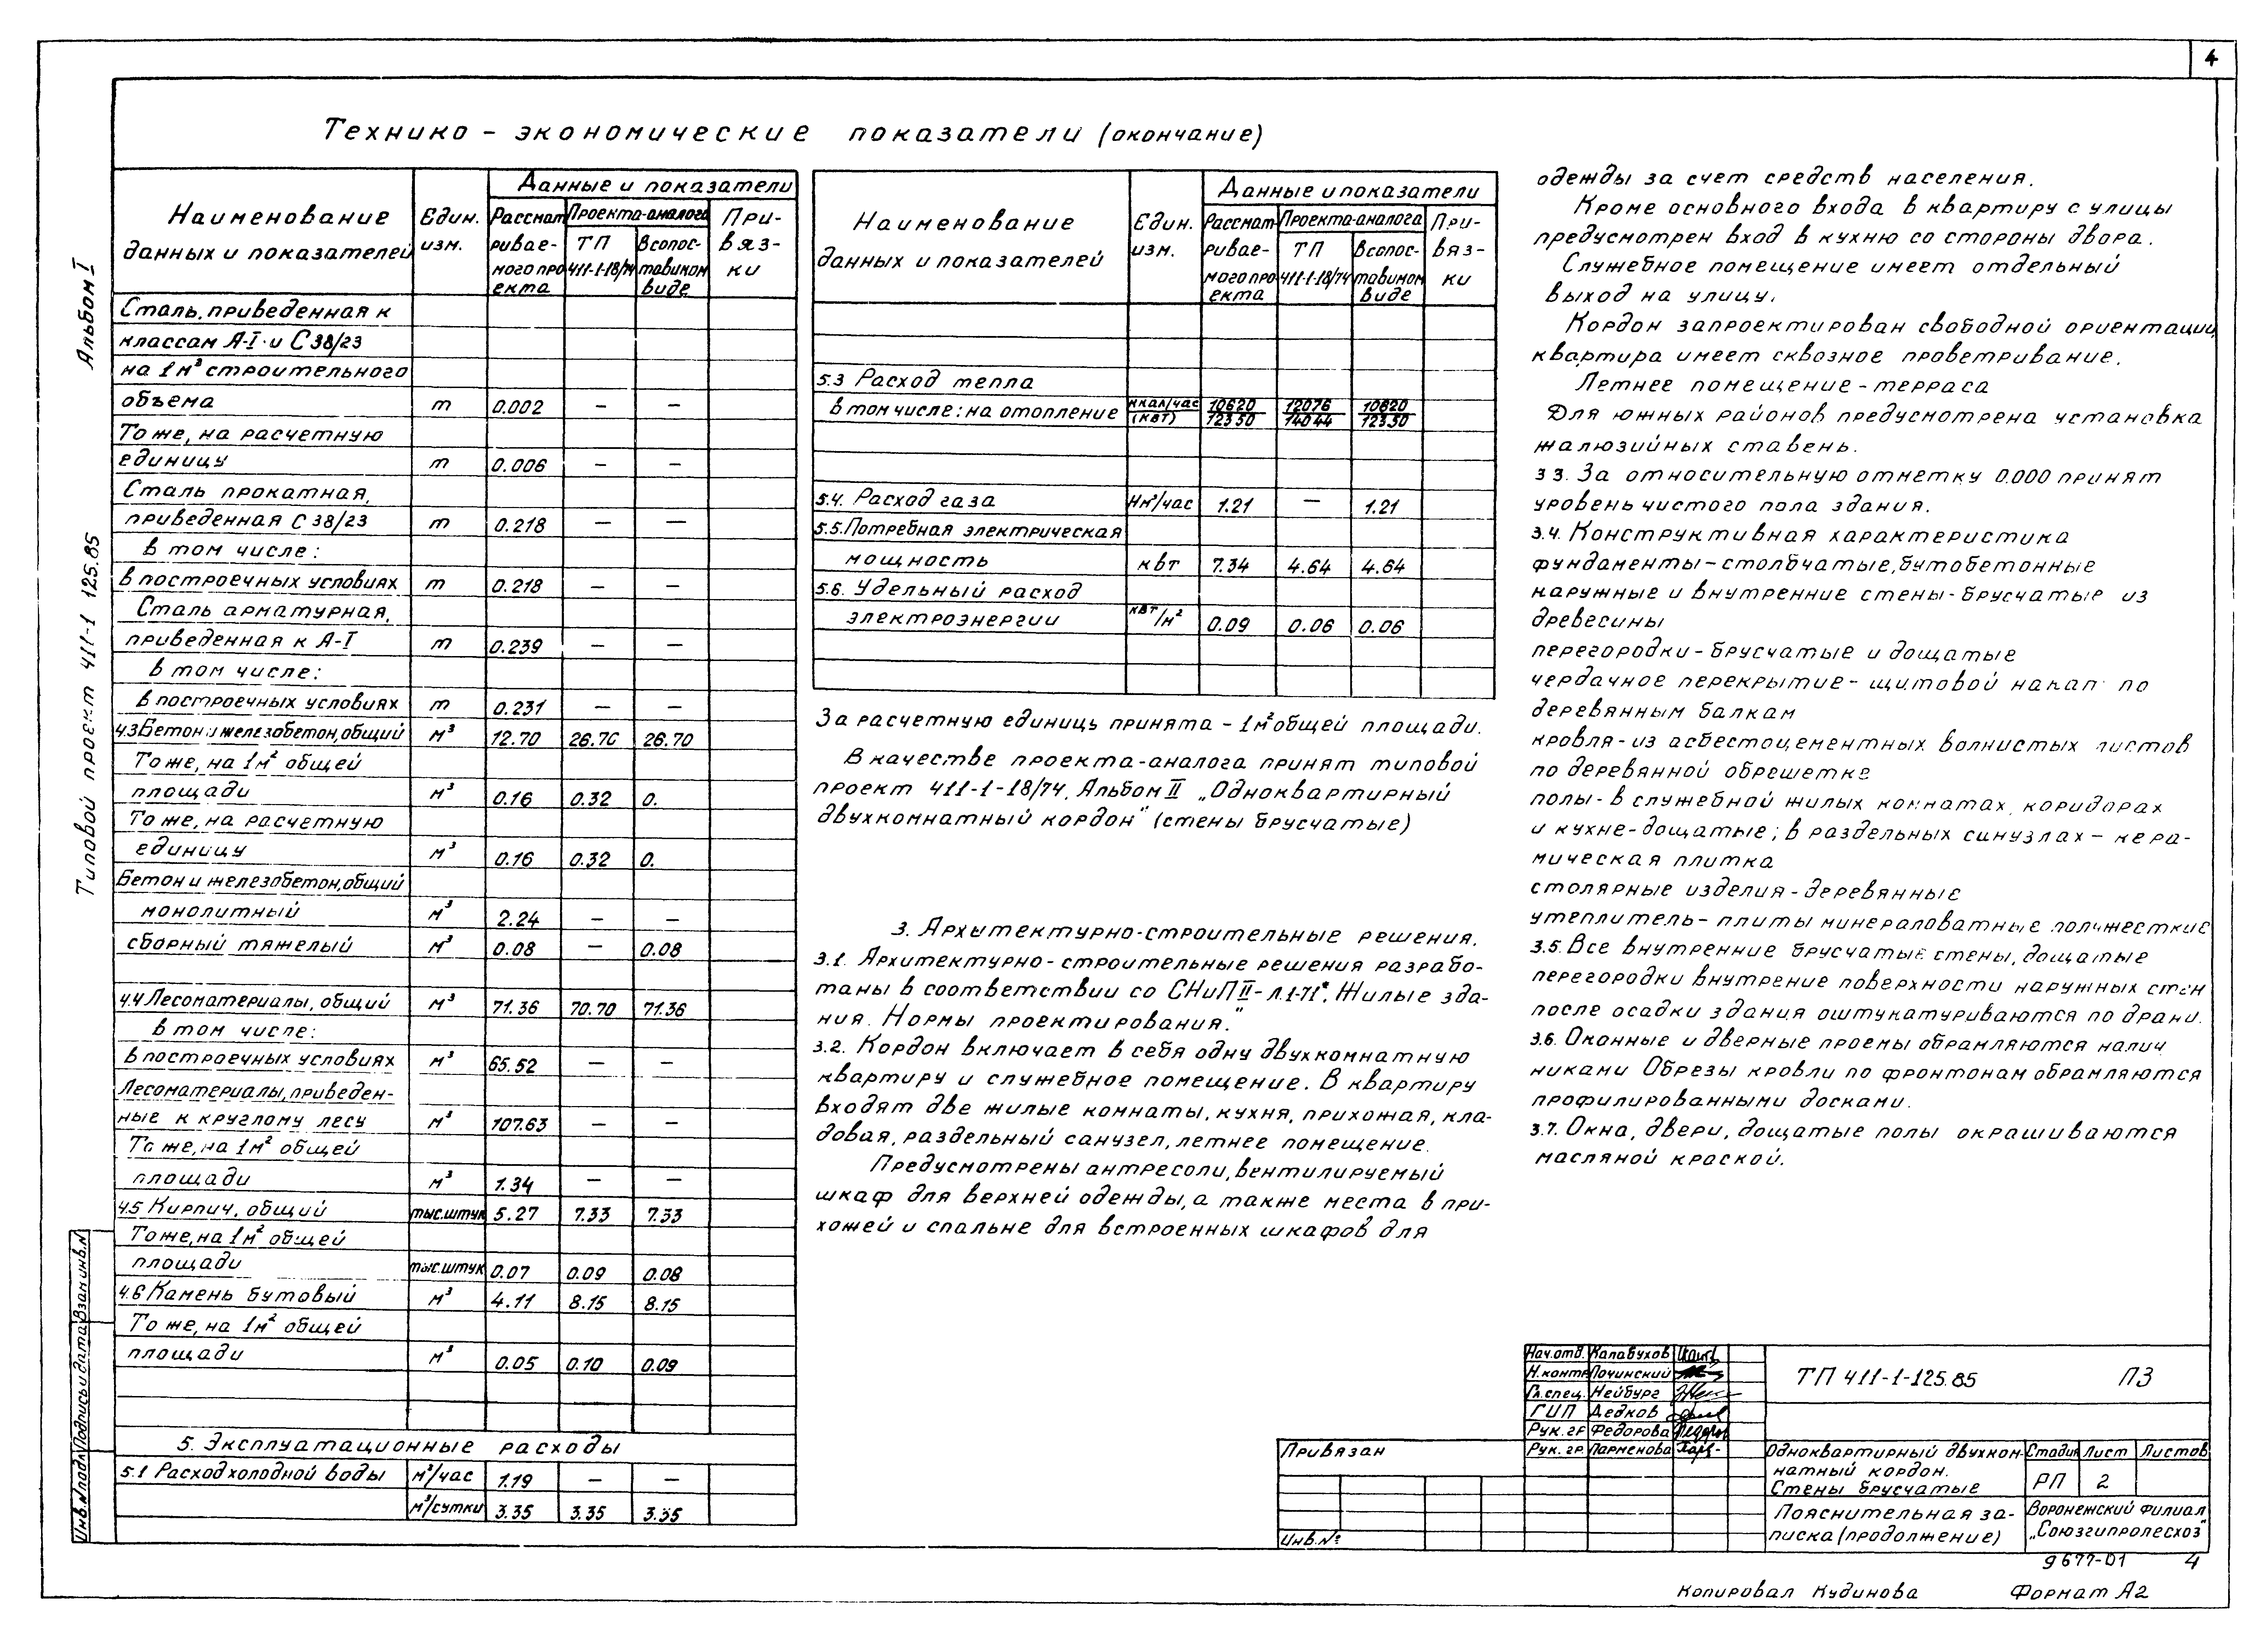 4
Технико - экономические показатели (окончание)
Альбом I
Типовой проект 411-1 125.85
Инв.№подл Подпись и дата Взам инв.№
Наименование данных и показателей
Един. изм.
Данные и показатели
Рассматриваемого проекта
Проекта-аналога
ТП 411-1-18/74
В сопоставимом виде
Привязки
Сталь, приведенная к
классам А-I и С 38/23
на 1м³ строительного
объема т 0.002 — —
То же, на расчетную
единицу т 0.006 — —
Сталь прокатная,
приведенная С 38/23 т 0.218 — —
в том числе:
в построечных условиях т 0.218 — —
Сталь арматурная,
приведенная к А-I т 0.239 — —
в том числе:
в построечных условиях т 0.231 — —
4.3 Бетон и железобетон, общий м³ 12.70 26.70 26.70
То же, на 1м² общей
площади м³ 0.16 0.32 0.
То же, на расчетную
единицу м³ 0.16 0.32 0.
Бетон и железобетон, общий
монолитный м³ 2.24 — —
сборный тяжелый м³ 0.08 — 0.08
4.4 Лесоматериалы, общий м³ 71.36 70.70 71.36
в том числе:
в построечных условиях м³ 65.52 — —
Лесоматериалы, приведен-
ные к круглому лесу м³ 107.63 — —
То же, на 1м² общей
площади м³ 1.34 — —
4.5 Кирпич, общий тыс.штук 5.27 7.33 7.33
То же, на 1м² общей
площади тыс.штук 0.07 0.09 0.08
4.6 Камень бутовый м³ 4.11 8.15 8.15
То же, на 1м² общей
площади м³ 0.05 0.10 0.09
5. Эксплуатационные расходы
5.1 Расход холодной воды м³/час 1.19 — —
м³/сутки 3.35 3.35 3.35
Наименование данных и показателей
Един. изм.
Данные и показатели
Рассматриваемого проекта
Проекта-аналога
ТП 411-1-18/74
В сопоставимом виде
Привязки
5.3 Расход тепла
в том числе: на отопление ккал/час (квт) 10620 12350 12076 14044 10620 12350
5.4. Расход газа Нм³/час 1.21 — 1.21
5.5. Потребная электрическая
мощность квт 7.34 4.64 4.64
5.6. Удельный расход
электроэнергии квт/м² 0.09 0.06 0.06
За расчетную единицъ принята - 1м² общей площади.
В качестве проекта-аналога принят типовой
проект 411-1-18/74. Альбом II „Одноквартирный
двухкомнатный кордон" (стены брусчатые)
3. Архитектурно-строительные решения.
3.1. Архитектурно-строительные решения разрабо-
таны в соответствии со СНиП II-Л.1-71*. Жилые зда-
ния. Нормы проектирования."
3.2. Кордон включает в себя одну двухкомнатную
квартиру и служебное помещение. В квартиру
входят две жилые комнаты, кухня, прихожая, кла-
довая, раздельный санузел, летнее помещение.
Предусмотрены антресоли, вентилируемый
шкаф для верхней одежды, а также места в при-
хожей и спальне для встроенных шкафов для
одежды за счет средств населения.
Кроме основного входа в квартиру с улицы
предусмотрен вход в кухню со стороны двора.
Служебное помещение имеет отдельный
выход на улицу.
Кордон запроектирован свободной ориентации,
квартира имеет сквозное проветривание.
Летнее помещение - терраса
Для южных районов предусмотрена установка
жалюзийных ставень.
3 3. За относительную отметку 0.000 принят
уровень чистого пола здания.
3.4. Конструктивная характеристика
фундаменты - столбчатые, бутобетонные
наружные и внутренние стены - брусчатые из
древесины
перегородки - брусчатые и дощатые
чердачное перекрытие - щитовой накат по
деревянным балкам
кровля - из асбестоцементных волнистых листов
по деревянной обрешетке
полы - в служебной жилых комнатах, коридорах
и кухне - дощатые; в раздельных санузлах - кера-
мическая плитка
столярные изделия - деревянные
утеплитель - плиты минераловатные полужесткие
3.5. Все внутренние брусчатые стены, дощатые
перегородки внутрение поверхности наружных стен
после осадки здания оштукатуриваются по драни.
3.6. Оконные и дверные проемы обрамляются налич
никами Обрезы кровли по фронтонам обрамляются
профилированными досками.
3.7. Окна, двери, дощатые полы окрашиваются
масляной краской.
Нач.отд. Калабухов
Н.контр Починский
Гл.спец. Нейбург
ГИП Дедков
Рук.гр Федорова
Рук.гр. Парменова
Привязан
Инв.№
ТП 411-1-125.85 ПЗ
Одноквартирный двухком-
натный кордон.
Стены брусчатые
Стадия Лист Листов
РП 2
Пояснительная за-
писка (продолжение)
Воронежский филиал
„Союзгипролесхоз"
9677-01 4
Копировал Кудинова Формат А2